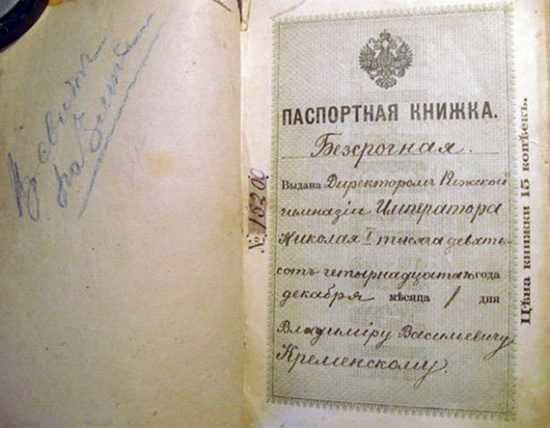 ПАСПОРТНАЯ КНИЖКА.
Безсрочная.
Выдана Директоромъ Рижской
гимназіи Императора
Николая I тысяча девять-
сотъ четырнадцатаго года
декабря мѣсяца 1 дня
Владиміру Васильевичу
Кременскому.
№ 15200
Цѣна книжки 15 копѣекъ.